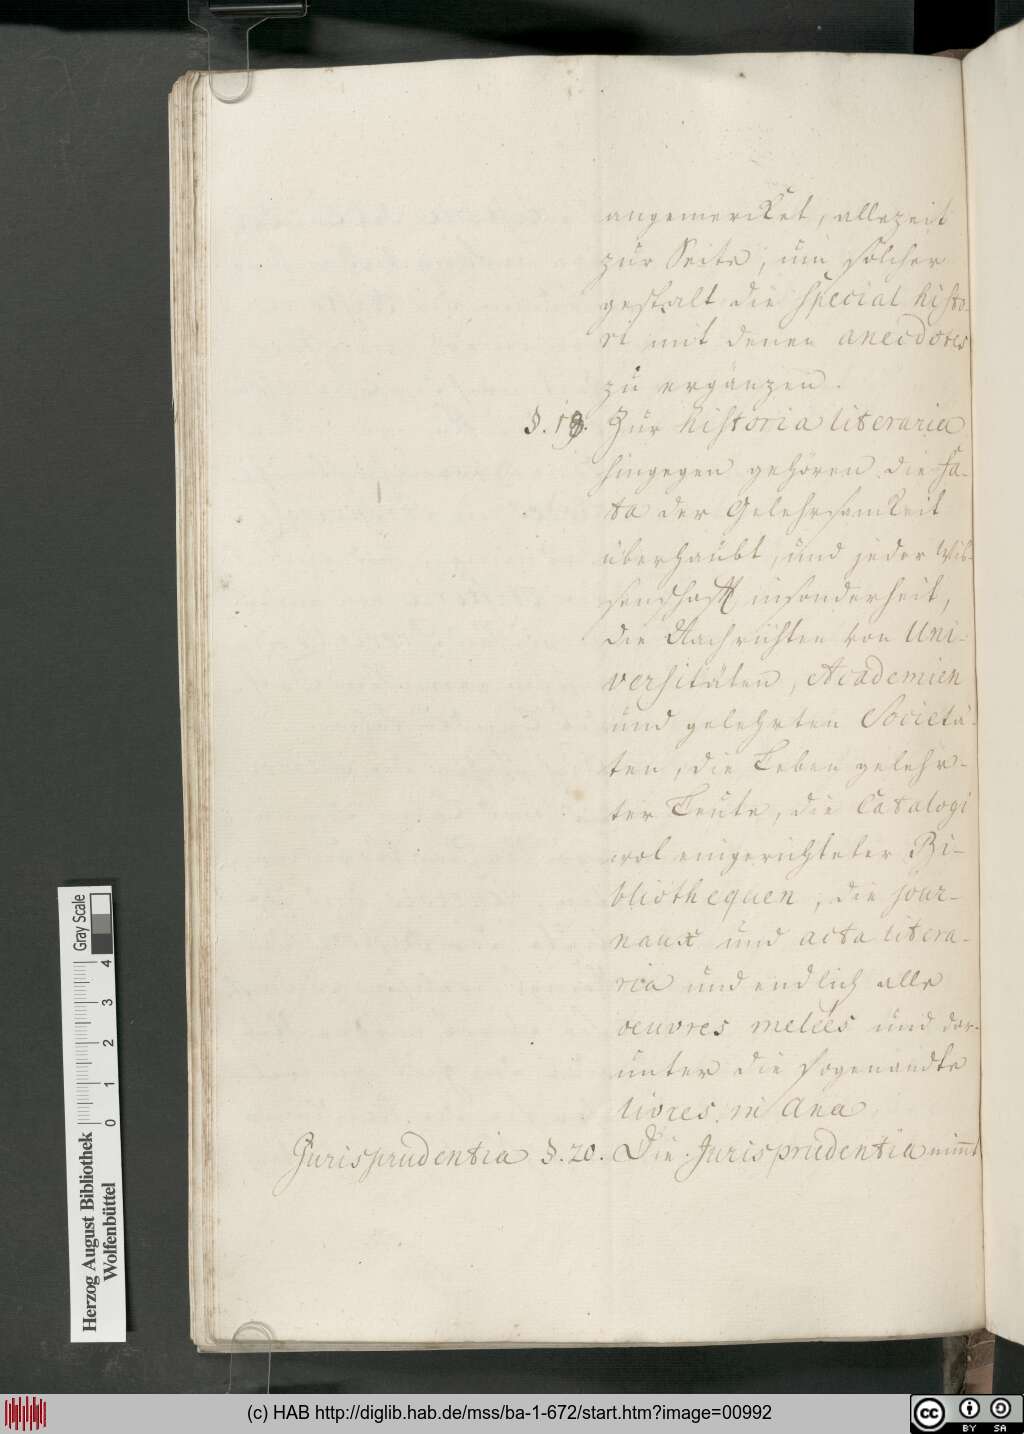 angemercket, allezeit
zur Seite, um solcher
gestalt die special histo-
ri mit denen anecdotes
zu ergänzen.
§. 19. Zur historia literaria
hingegen gehören die fa-
ta der Gelehrsamkeit
überhaubt, und jeder Wis-
senschafft insonderheit,
die Nachrichten von Uni-
versitäten, Academien
und gelehrten Societä-
ten, die Leben gelehr-
ter Leute, die Catalogi
wol eingerichteter Bi-
bliothequen, die jour-
naux und acta litera-
ria und endlich alle
oeuvres melées und dar-
unter die sogenandte
livres in Ana
Jurisprudentia §. 20. Die Jurisprudentia nimt
Gray Scale
0 1 2 3 4
Herzog August Bibliothek
Wolfenbüttel
(c) HAB http://diglib.hab.de/mss/ba-1-672/start.htm?image=00992
cc BY SA